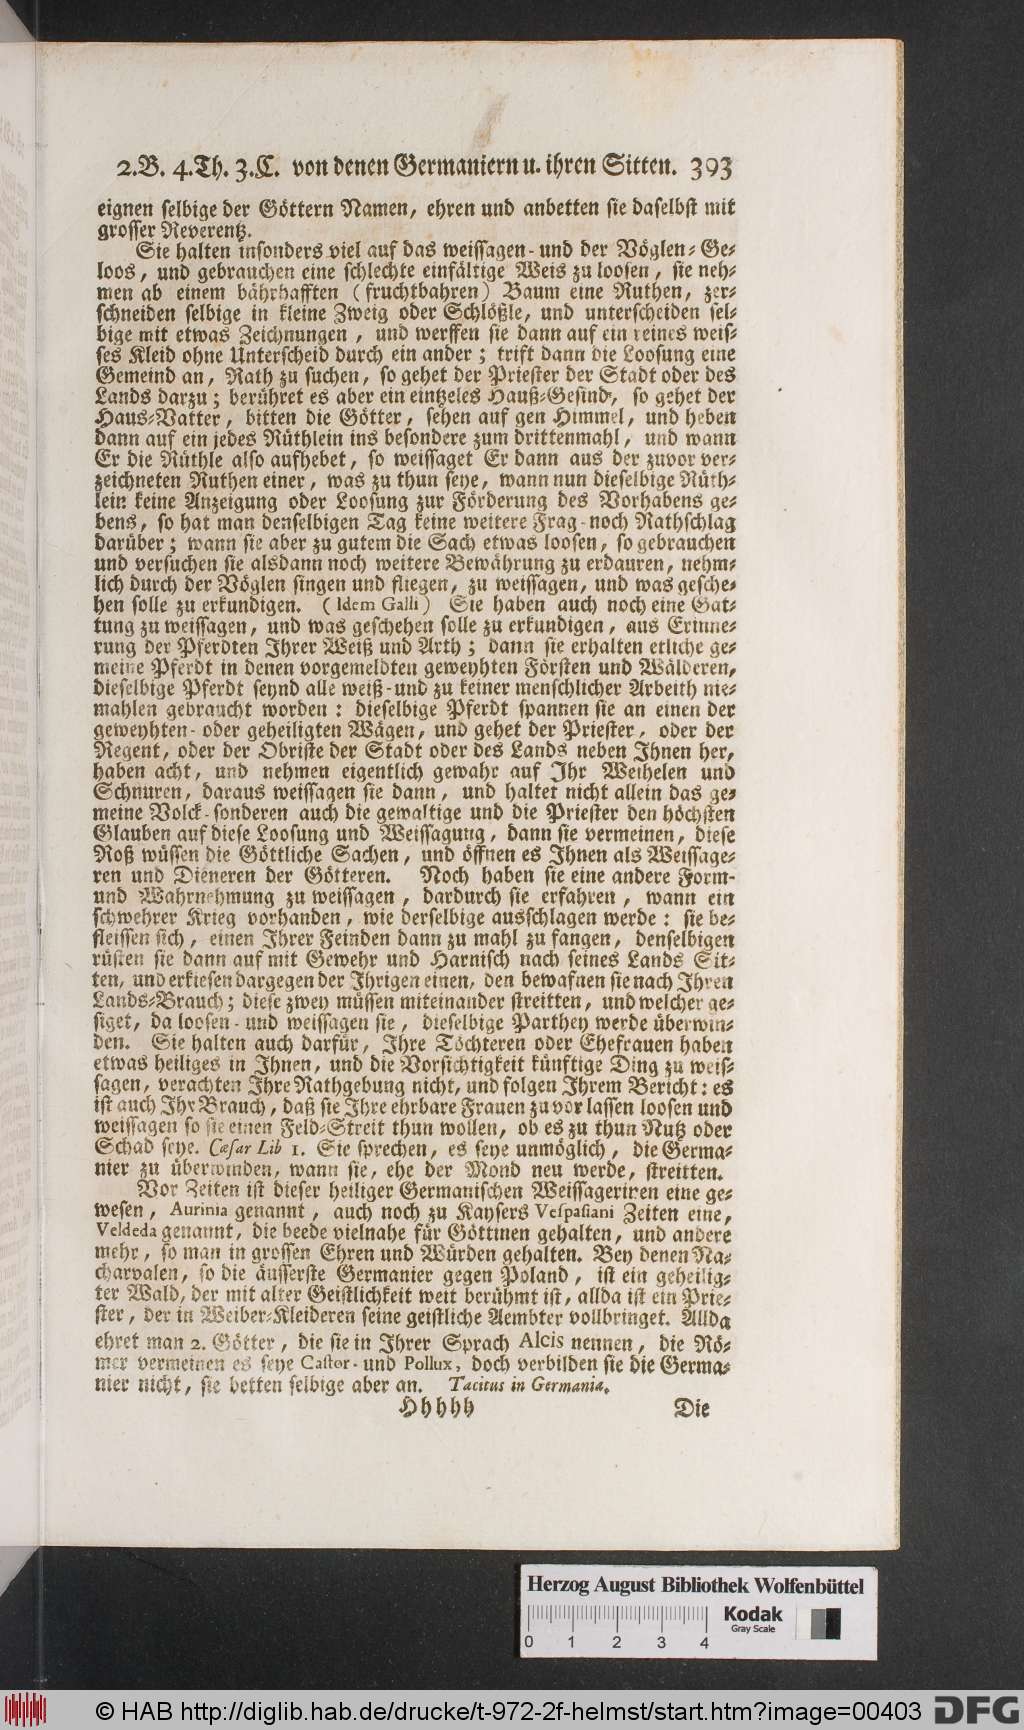 2.B. 4.Th. 3.C. von denen Germaniern u. ihren Sitten. 393
eignen selbige der Göttern Namen, ehren und anbetten sie daselbst mit
grosser Reverentz.
Sie halten insonders viel auf das weissagen- und der Vöglen-Ge-
loos, und gebrauchen eine schlechte einfältige Weis zu loosen, sie neh-
men ab einem bährhafften (fruchtbahren) Baum eine Ruthen, zer-
schneiden selbige in kleine Zweig oder Schlößle, und unterscheiden sel-
bige mit etwas Zeichnungen, und werffen sie dann auf ein reines weis-
ses Kleid ohne Unterscheid durch ein ander; trift dann die Loosung eine
Gemeind an, Rath zu suchen, so gehet der Priester der Stadt oder des
Lands darzu; berühret es aber ein eintzeles Hauß-Gesind, so gehet der
Haus-Vatter, bitten die Götter, sehen auf gen Himmel, und heben
dann auf ein jedes Rüthlein ins besondere zum drittenmahl, und wann
Er die Rüthle also aufhebet, so weissaget Er dann aus der zuvor ver-
zeichneten Ruthen einer, was zu thun seye, wann nun dieselbige Rüth-
lein keine Anzeigung oder Loosung zur Förderung des Vorhabens ge-
bens, so hat man denselbigen Tag keine weitere Frag-noch Rathschlag
darüber; wann sie aber zu gutem die Sach etwas loosen, so gebrauchen
und versuchen sie alsdann noch weitere Bewährung zu erdauren, nehm-
lich durch der Vöglen singen und fliegen, zu weissagen, und was gesche-
hen solle zu erkundigen. (Idem Galli) Sie haben auch noch eine Gat-
tung zu weissagen, und was geschehen solle zu erkundigen, aus Erinne-
rung der Pferdten Ihrer Weiß und Arth; dann sie erhalten etliche ge-
meine Pferdt in denen vorgemeldten geweyhten Försten und Wälderen,
dieselbige Pferdt seynd alle weiß-und zu keiner menschlicher Arbeith nie-
mahlen gebraucht worden: dieselbige Pferdt spannen sie an einen der
geweyhten- oder geheiligten Wägen, und gehet der Priester, oder der
Regent, oder der Obriste der Stadt oder des Lands neben Ihnen her,
haben acht, und nehmen eigentlich gewahr auf Ihr Weihelen und
Schnuren, daraus weissagen sie dann, und haltet nicht allein das ge-
meine Volck-sonderen auch die gewaltige und die Priester den höchsten
Glauben auf diese Loosung und Weissagung, dann sie vermeinen, diese
Roß wüssen die Göttliche Sachen, und öffnen es Ihnen als Weissage-
ren und Dieneren der Götteren. Noch haben sie eine andere Form-
und Wahrnehmung zu weissagen, dardurch sie erfahren, wann ein
schwehrer Krieg vorhanden, wie derselbige ausschlagen werde: sie be-
fleissen sich, einen Ihrer Feinden dann zu mahl zu fangen, denselbigen
rüsten sie dann auf mit Gewehr und Harnisch nach seines Lands Sit-
ten, und erkiesen dargegen der Ihrigen einen, den bewafnen sie nach Ihren
Lands-Brauch; diese zwey müssen miteinander streitten, und welcher ge-
siget, da loosen- und weissagen sie, dieselbige Parthey werde überwin-
den. Sie halten auch darfür, Ihre Töchteren oder Ehefrauen haben
etwas heiliges in Ihnen, und die Vorsichtigkeit künftige Ding zu weis-
sagen, verachten Ihre Rathgebung nicht, und folgen Ihrem Bericht: es
ist auch Ihr Brauch, daß sie Ihre ehrbare Frauen zuvor lassen loosen und
weissagen so sie einen Feld-Streit thun wollen, ob es zu thun Nutz oder
Schad seye. Cæsar Lib 1. Sie sprechen, es seye unmöglich, die Germa-
nier zu überwinden, wann sie, ehe der Mond neu werde, streitten.
Vor Zeiten ist dieser heiliger Germanischen Weissagerinen eine ge-
wesen, Aurinia genannt, auch noch zu Kaysers Vespasiani Zeiten eine,
Veldeda genannt, die beede vielnahe für Göttinen gehalten, und andere
mehr, so man in grossen Ehren und Würden gehalten. Bey denen Na-
charvalen, so die äusserste Germanier gegen Poland, ist ein geheilig-
ter Wald, der mit alter Geistlichkeit weit berühmt ist, allda ist ein Prie-
ster, der in Weiber-Kleideren seine geistliche Aembter vollbringet. Allda
ehret man 2. Götter, die sie in Ihrer Sprach Alcis nennen, die Rö-
mer vermeinen es seye Castor- und Pollux, doch verbilden sie die Germa-
nier nicht, sie betten selbige aber an. Tacitus in Germania.
Hhhhh Die
Herzog August Bibliothek Wolfenbüttel
Kodak
Gray Scale
0 1 2 3 4
© HAB http://diglib.hab.de/drucke/t-972-2f-helmst/start.htm?image=00403 DFG